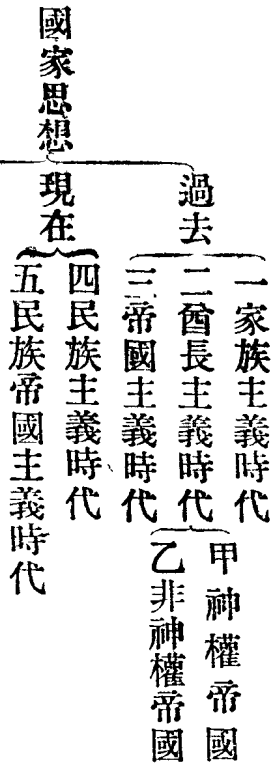 國家思想
過去
一家族主義時代
二酋長主義時代
三帝國主義時代
甲神權帝國
乙非神權帝國
現在
四民族主義時代
五民族帝國主義時代